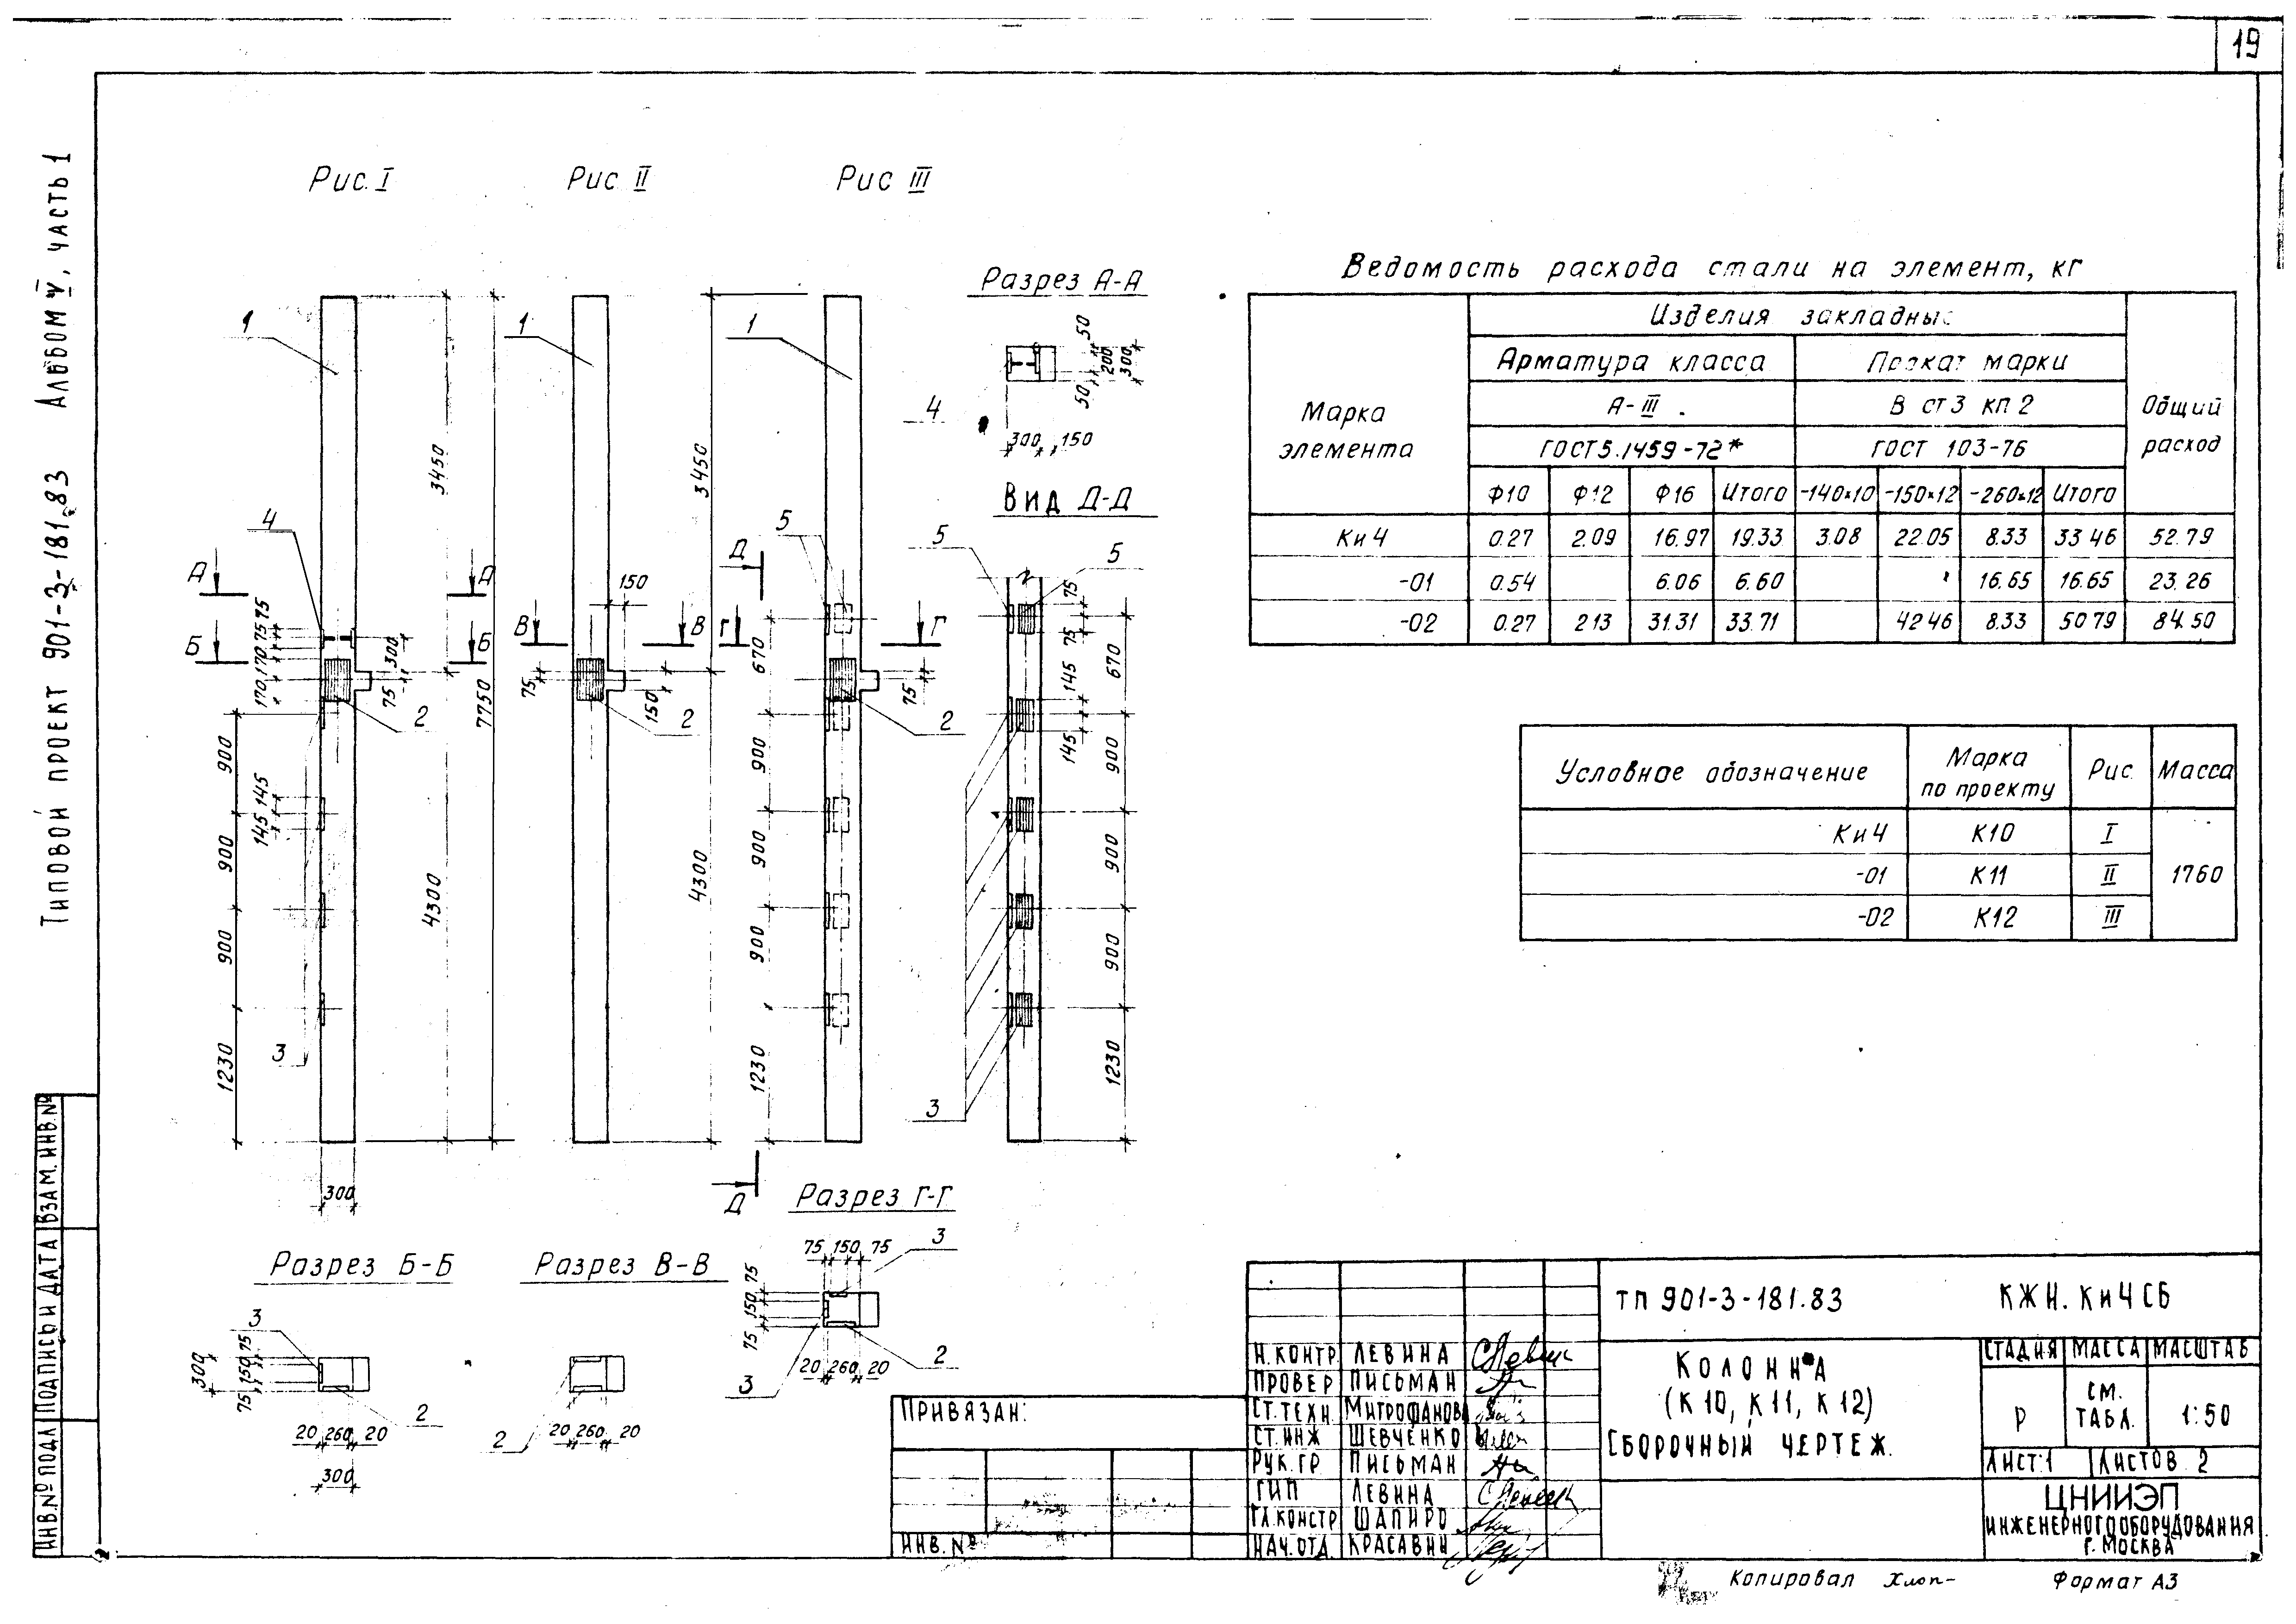 19
Типовой проект 901-3-181.83 Альбом V, часть 1
Рис. I
Рис II
Рис III
Разрез А-А
Вид Д-Д
1
1
1
4
4
5
5
5
А
А
Б
Б
В
В
Г
Г
Д
Д
2
2
2
3
3
3450
7750
4300
3450
4300
300
75
75
170
170
75
900
145
145
900
900
1230
300
150
75
150
670
75
900
900
900
1230
50
200
300
50
300 150
75
75
145
145
670
900
900
900
1230
Разрез Б-Б
3
300
75
150
75
2
20 260 20
300
Разрез В-В
2
20 260 20
Разрез Г-Г
75 150 75
3
75
150
75
3
2
20 260 20
Ведомость расхода стали на элемент, кг
Марка элемента
Изделия закладны
Общий расход
Арматура класса
Прокат марки
А-III
В ст3 кп 2
ГОСТ5.1459-72*
ГОСТ 103-76
Ф10 Ф12 Ф16 Итого -140x10 -150x12 -260x12 Итого
Ки4 0.27 2.09 16.97 19.33 3.08 22.05 8.33 33 46 52.79
-01 0.54 6.06 6.60 16.65 16.65 23.26
-02 0.27 2 13 31.31 33.71 42 46 8.33 50 79 84.50
Условное обозначение Марка по проекту Рис. Масса
Ки4 К10 I
-01 К11 II 1760
-02 К12 III
Инв.№ подл Подпись и дата Взам. инв.№
Привязан:
Инв. №
Н.контр. Левина
Провер Письман
Ст.техн. Митрофанова
Ст.инж Шевченко
Рук.гр Письман
ГИП Левина
Гл.констр Шапиро
Нач.отд. Красавин
ТП 901-3-181.83 КЖИ.Ки4СБ
Колонна
(К10, К11, К12)
Сборочный чертеж.
Стадия Масса Масштаб
Р см. табл. 1:50
Лист 1 Листов 2
ЦНИИЭП
инженерного оборудования
г. Москва
Копировал Хлоп-
Формат А3